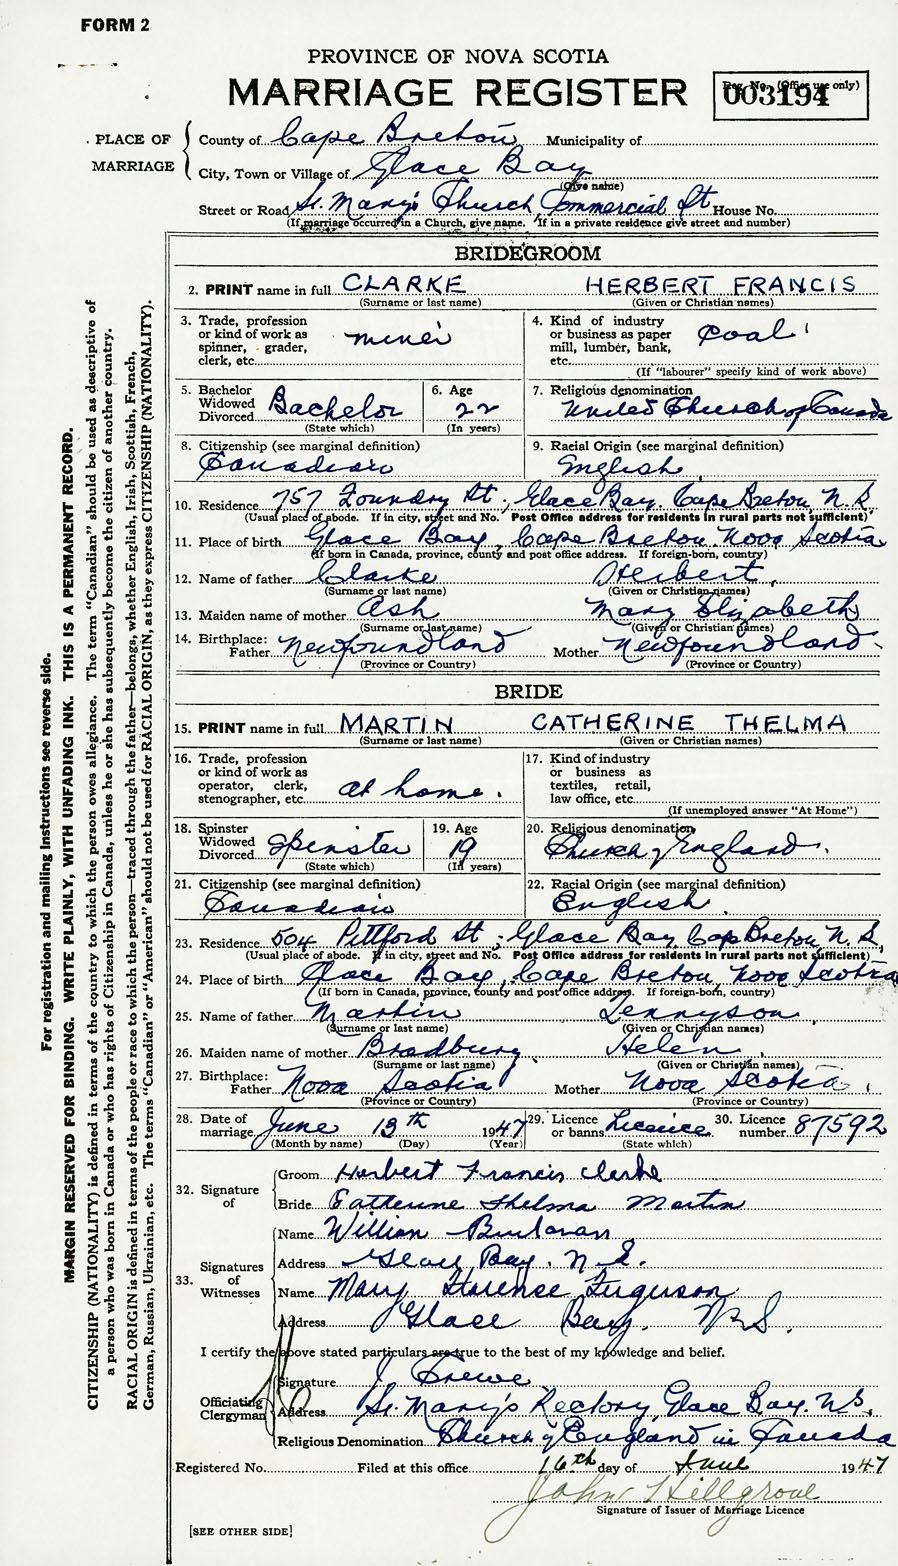 FORM 2
PROVINCE OF NOVA SCOTIA
MARRIAGE REGISTER
Reg. No. (Office use only)
003194
PLACE OF MARRIAGE
County of Cape Breton Municipality of
City, Town or Village of Glace Bay
(Give name)
Street or Road St. Mary's Church Commercial St House No.
(If marriage occurred in a Church, give name. If in a private residence give street and number)
BRIDEGROOM
2. PRINT name in full CLARKE HERBERT FRANCIS
(Surname or last name) (Given or Christian names)
3. Trade, profession or kind of work as spinner, grader, clerk, etc. miner
4. Kind of industry or business as paper mill, lumber, bank, etc. Coal
(If "labourer" specify kind of work above)
5. Bachelor Widowed Divorced Bachelor
(State which)
6. Age 22
(In years)
7. Religious denomination United Church of Canada
8. Citizenship (see marginal definition) Canadian
9. Racial Origin (see marginal definition) English
10. Residence 757 Foundry St; Glace Bay, Cape Breton N.S.
(Usual place of abode. If in city, street and No. Post Office address for residents in rural parts not sufficient)
11. Place of birth Glace Bay, Cape Breton Nova Scotia
(If born in Canada, province, county and post office address. If foreign-born, country)
12. Name of father Clarke Herbert
(Surname or last name) (Given or Christian names)
13. Maiden name of mother Ash Mary Elizabeth
(Surname or last name) (Given or Christian names)
14. Birthplace: Father Newfoundland Mother Newfoundland
(Province or Country) (Province or Country)
BRIDE
15. PRINT name in full MARTIN CATHERINE THELMA
(Surname or last name) (Given or Christian names)
16. Trade, profession or kind of work as operator, clerk, stenographer, etc. at home.
17. Kind of industry or business as textiles, retail, law office, etc.
(If unemployed answer "At Home")
18. Spinster Widowed Divorced Spinster
(State which)
19. Age 19
(In years)
20. Religious denomination Church of England.
21. Citizenship (see marginal definition) Canadian
22. Racial Origin (see marginal definition) English
23. Residence 504 Pittford St; Glace Bay, Cape Breton, N.S.
(Usual place of abode. If in city, street and No. Post Office address for residents in rural parts not sufficient)
24. Place of birth Glace Bay, Cape Breton, Nova Scotia
(If born in Canada, province, county and post office address. If foreign-born, country)
25. Name of father Martin Tennyson
(Surname or last name) (Given or Christian names)
26. Maiden name of mother Bradbury Helen
(Surname or last name) (Given or Christian names)
27. Birthplace: Father Nova Scotia Mother Nova Scotia
(Province or Country) (Province or Country)
28. Date of marriage June 13th 1947
(Month by name) (Day) (Year)
29. Licence or banns Licence
(State which)
30. Licence number 87592
32. Signature of
Groom Herbert Francis Clarke
Bride Catherine Thelma Martin
33. Signatures of Witnesses
Name William
Address Glace Bay, N.S.
Name Mary Florence Ferguson
Address Glace Bay. N.S.
I certify the above stated particulars are true to the best of my knowledge and belief.
Officiating Clergyman
Signature J Crewe
Address St. Mary's Rectory, Glace Bay. N.S.
Religious Denomination Church of England in Canada
Registered No. Filed at this office 16th day of June 1947
John Hillgrove
Signature of Issuer of Marriage Licence
[SEE OTHER SIDE]
For registration and mailing instructions see reverse side.
MARGIN RESERVED FOR BINDING. WRITE PLAINLY, WITH UNFADING INK. THIS IS A PERMANENT RECORD.
CITIZENSHIP (NATIONALITY) is defined in terms of the country to which the person owes allegiance. The term "Canadian" should be used as descriptive of
a person who was born in Canada or who has rights of Citizenship in Canada, unless he or she has subsequently become the citizen of another country.
RACIAL ORIGIN is defined in terms of the people or race to which the person—traced through the father—belongs, whether English, Irish, Scottish, French,
German, Russian, Ukrainian, etc. The terms "Canadian" or "American" should not be used for RACIAL ORIGIN, as they express CITIZENSHIP (NATIONALITY).